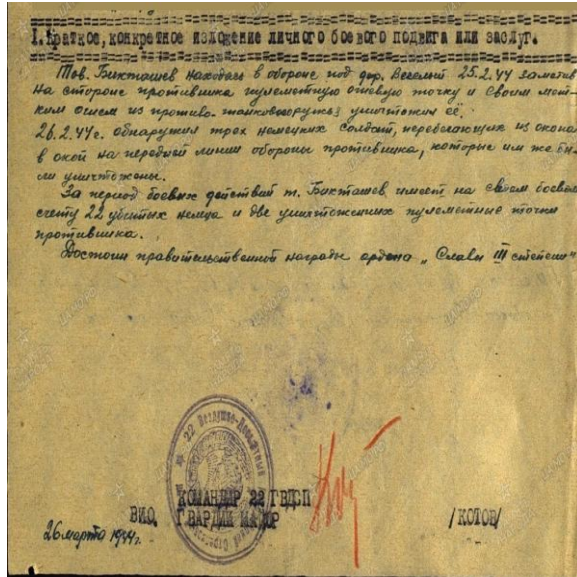 I. Краткое, конкретное изложение личного боевого подвига или заслуг.
Тов. Бикташев находясь в обороне под дер. 25.2.44 заметив
на стороне противника пулеметную огневую точку и своим мет-
ким огнем из противо-танкового ружья уничтожил её.
26.2.44г. обнаружил трех немецких солдат, перебегающих из окопа
в окоп на передней линии обороны противника, которые им же бы-
ли уничтожены.
За период боевых действий т. Бикташев имеет на своем боевом
счету 22 убитых немца и две уничтоженных пулеметные точки
противника.
Достоин правительственной награды ордена „Славы III степени"
22 Воздушно-Десантный
КОМАНДИР 22 ГВДСП
ВИО. ГВАРДИИ МАЙОР /КОТОВ/
26 марта 1944г.